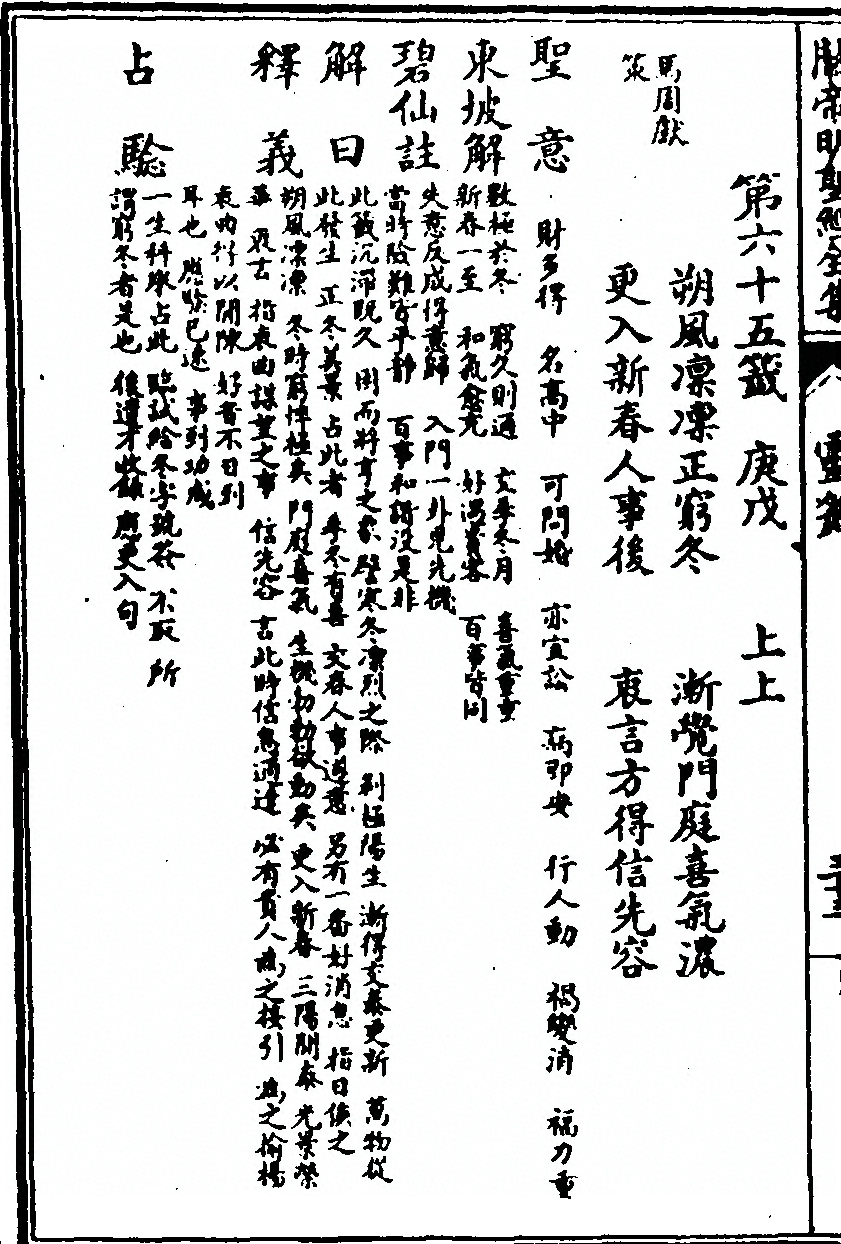 關帝明聖經全集
靈籤
第六十五籤 庚戊 上上
朔風凜凜正窮冬 漸覺門庭喜氣濃
更入新春人事後 衷言方得信先容
馬周獻
策
聖意 財多得 名高中 可問婚 亦宜訟 病即安 行人動 禍變消 福力重
東坡解
數極於冬 窮久則通 交季冬月 喜氣重重
新春一至 和氣愈充 好遇貴客 百事皆同
碧仙註
失意反成得意歸 入門一卦見先機
當時險難皆平靜 百事和諧沒是非
解曰
此籤沉滯既久 困而將亨之象 譬寒冬凜烈之際 剝極陽生 漸得交泰更新 萬物從
此發生 正冬美景 占此者 季冬有喜 交春人事遇意 另有一番好消息 指日俟之
釋義
朔風凜凜 冬時窮悴極矣 門庭喜氣 生機勃勃欲動矣 更入新春 三陽開泰 光景榮
華 衷言 指衷曲謀望之事 信先容 言此時信息通達 必有貴人為之接引 為之揄揚
衷曲得以開陳 好音不日到
耳也 應驗已速 事到功成
占驗
一生科舉占此 臨試給冬字號卷 不取 所
謂窮冬者是也 後遺才收錄 應更入句